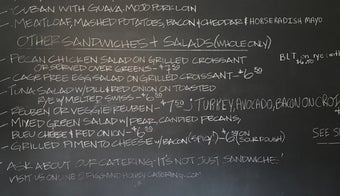 - CUBAN WITH GUAVA MOJO PORKLOIN
- MEATLOAF, MASHED POTATOES, BACON & CHEDDAR & HORSERADISH MAYO
OTHER SANDWICHES + SALADS (WHOLE ONLY)
- PECAN CHICKEN SALAD ON GRILLED CROISSANT
OR SERVED OVER GREENS - $7.50
- CAGE FREE EGG SALAD ON GRILLED CROISSANT - $6.50
BLT on rye with
- TUNA SALAD W/ DILL & RED ONION ON TOASTED
RYE W/ MELTED SWISS - $6.50
- REUBEN OR VEGGIE REUBEN - $7.50
TURKEY, AVOCADO, BACON ON CROI
- MIXED GREEN SALAD W/ PEAR, CANDIED PECANS,
BLEU CHEESE & RED ONION - $6.50
SEE S
- GRILLED PIMENTO CHEESE W/ BACON (SPICY) - $6.50 ON (SOURDOUGH)
ASK ABOUT OUR CATERING! IT'S NOT JUST SANDWICHES!
VISIT US ONLINE @ FIGSANDHONEYCATERING.COM